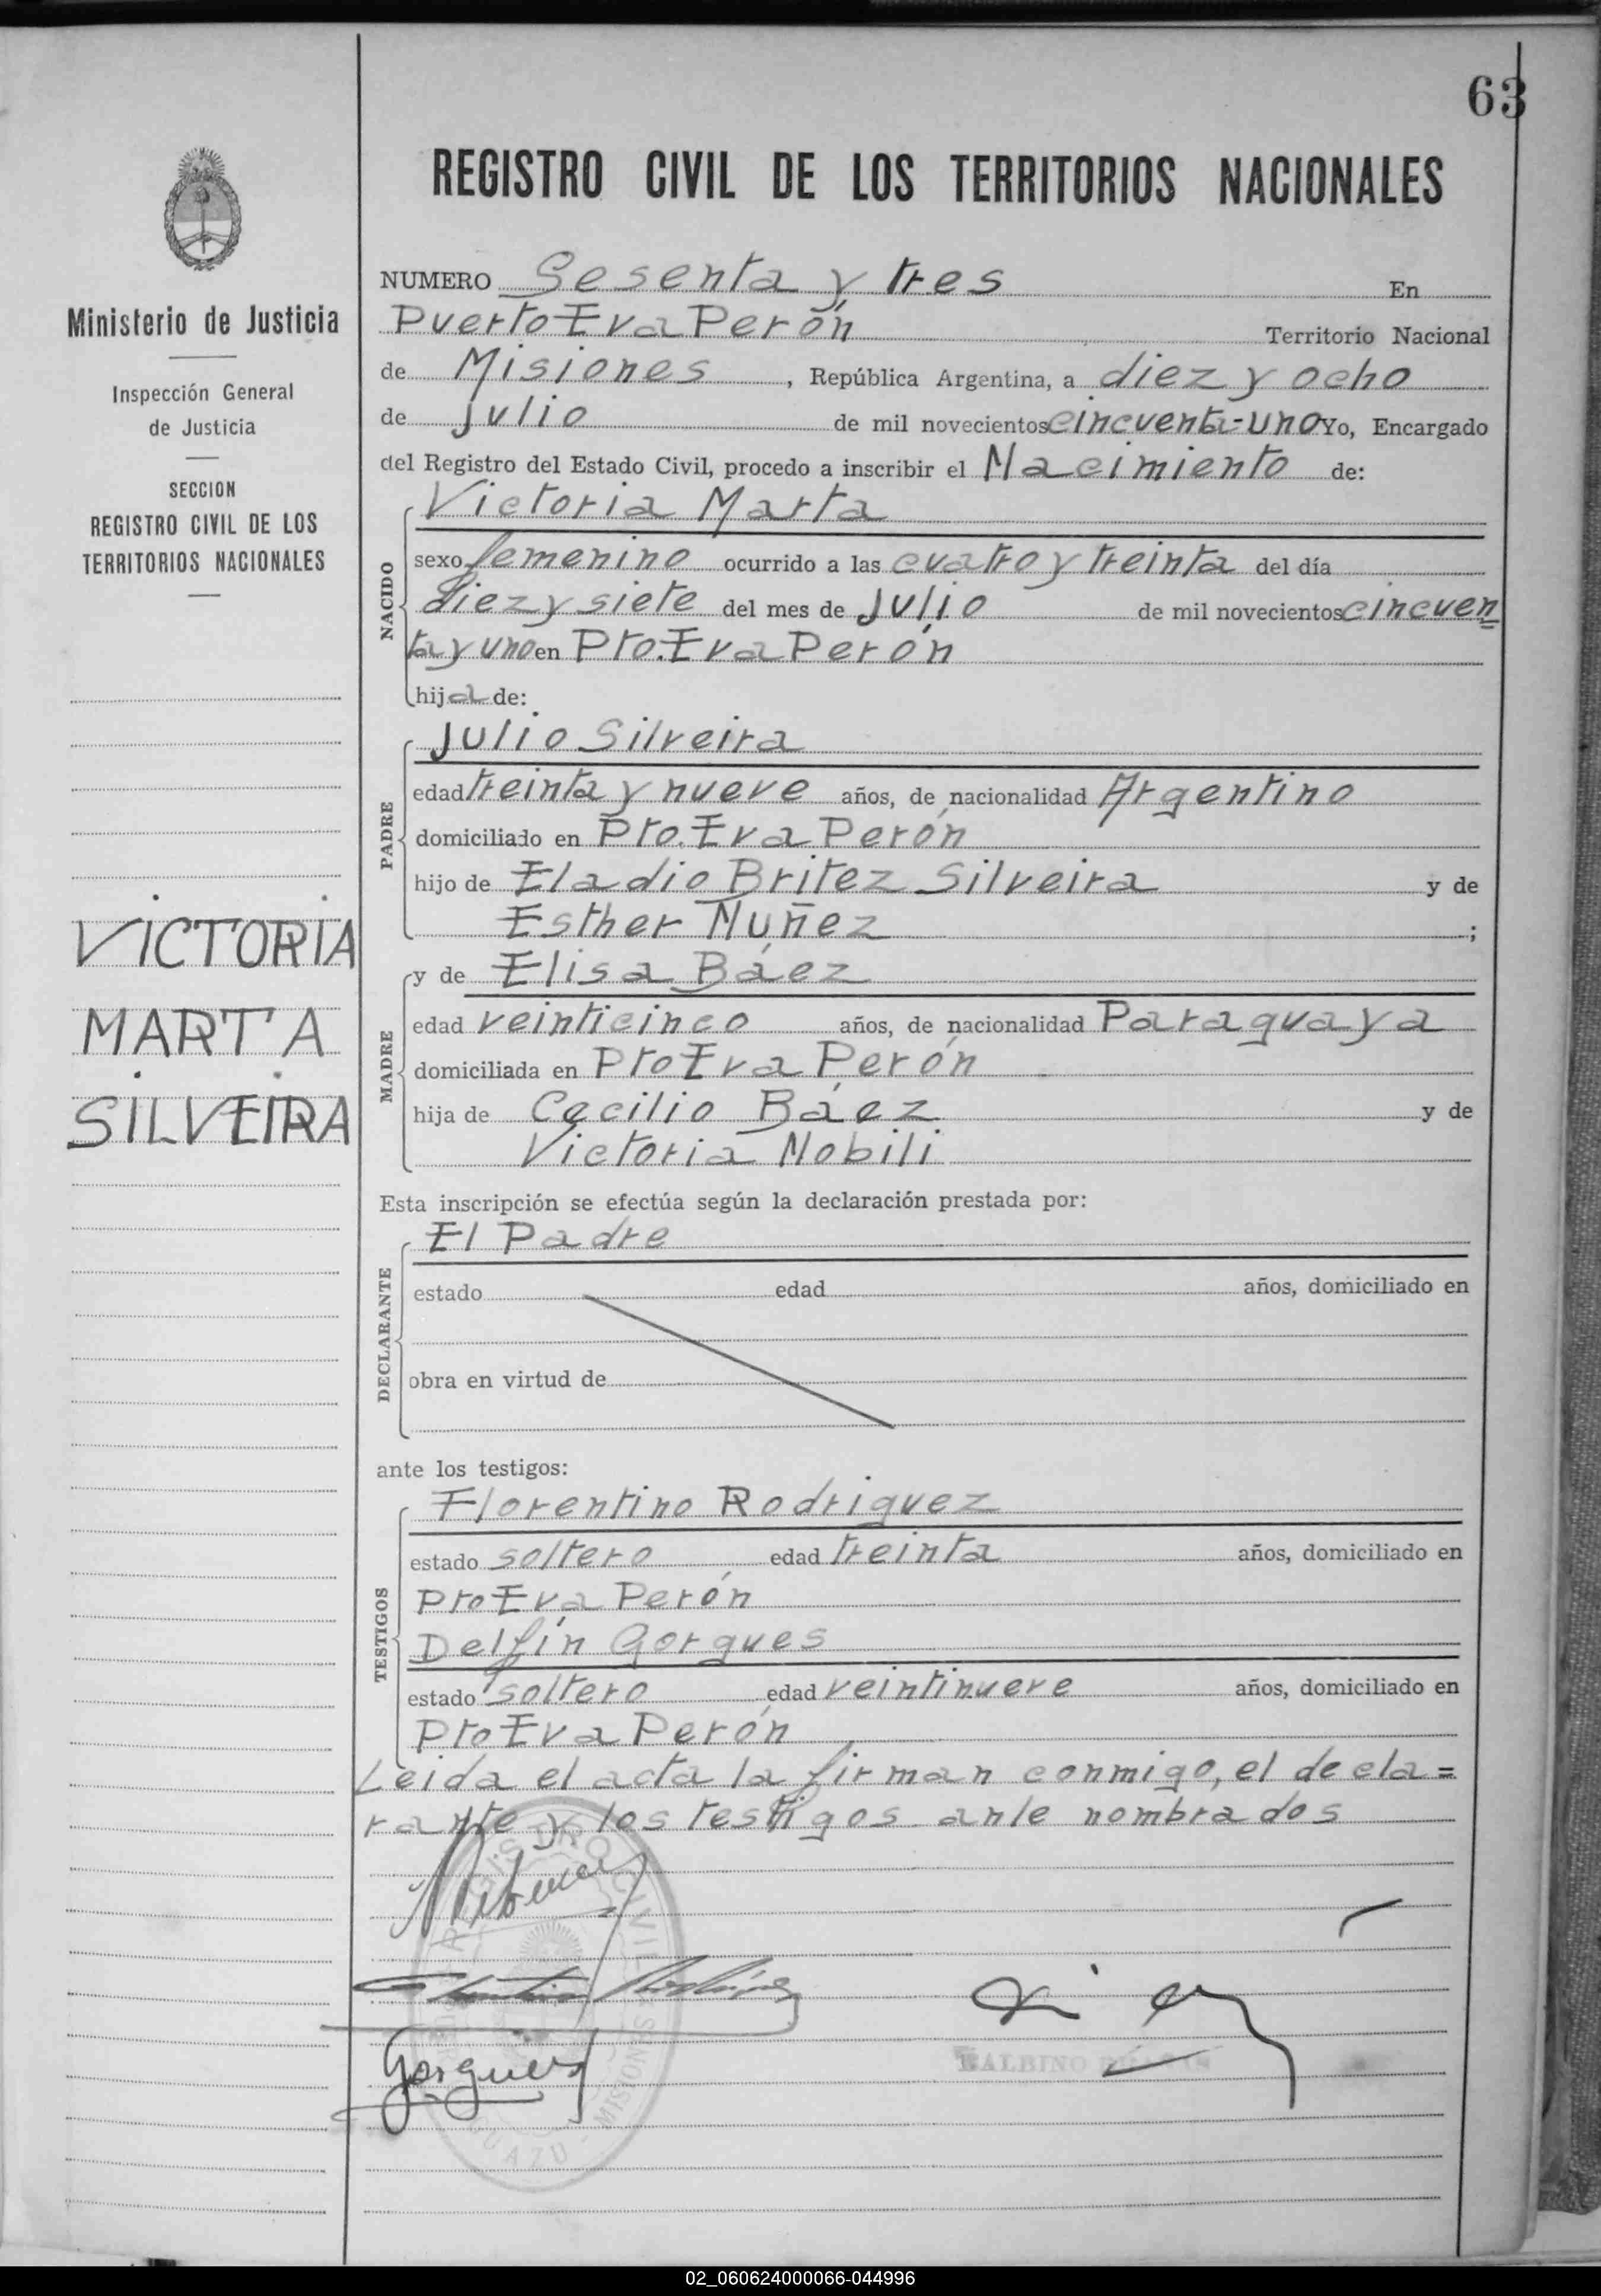 63
REGISTRO CIVIL DE LOS TERRITORIOS NACIONALES
Ministerio de Justicia
Inspección General
de Justicia
SECCION
REGISTRO CIVIL DE LOS
TERRITORIOS NACIONALES
VICTORIA
MARTA
SILVEIRA
NUMERO Sesenta y tres En
Puerto Eva Perón Territorio Nacional
de Misiones, República Argentina, a diez y ocho
de julio de mil novecientos cincuenta-uno Yo, Encargado
del Registro del Estado Civil, procedo a inscribir el Nacimiento de:
NACIDO
Victoria Marta
sexo femenino ocurrido a las cuatro y treinta del día
diez y siete del mes de julio de mil novecientos cincuen
ta y uno en Pto. Eva Perón
hija de:
PADRE
Julio Silveira
edad treinta y nueve años, de nacionalidad Argentino
domiciliado en Pto. Eva Perón
hijo de Eladio Britez Silveira y de
Esther Nuñez ;
MADRE
y de Elisa Báez
edad veinticinco años, de nacionalidad Paraguaya
domiciliada en Pto Eva Perón
hija de Cecilio Báez y de
Victoria Nobili
Esta inscripción se efectúa según la declaración prestada por:
DECLARANTE
El Padre
estado edad años, domiciliado en
obra en virtud de
ante los testigos:
TESTIGOS
Florentino Rodriguez
estado soltero edad treinta años, domiciliado en
Pto Eva Perón
Delfín Gorgues
estado soltero edad veintinueve años, domiciliado en
Pto Eva Perón
Leida el acta la firman conmigo, el decla=
rante y los testigos ante nombrados
REGISTRO CIVIL
MISIONES
Gorgues
BALBINO
02_060624000066-044996